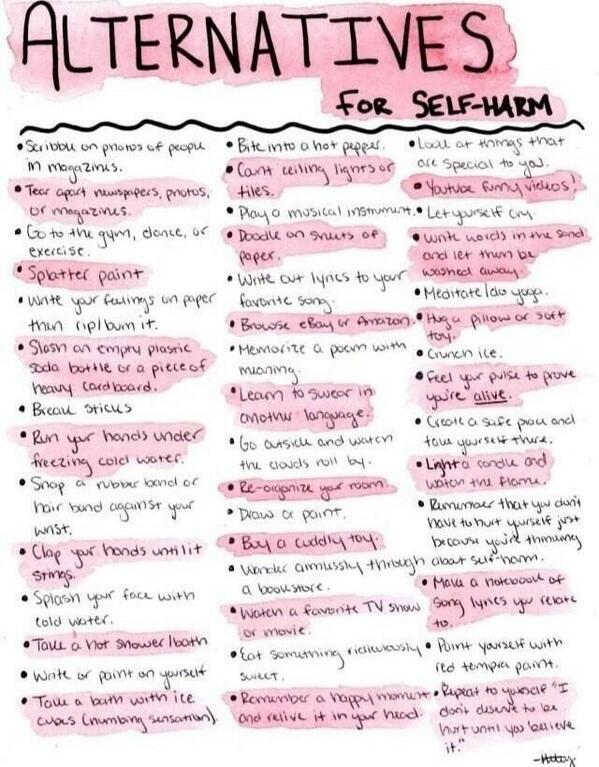 ALTERNATIVES
FOR SELF-HARM
• Scribble on photos of people
in magazines.
• Tear apart newspapers, photos,
or magazines.
• Go to the gym, dance, or
exercise.
• Splatter paint
• Write your feelings on paper
then rip/burn it.
• Slash an empty plastic
soda bottle or a piece of
heavy cardboard.
• Break sticks
• Run your hands under
freezing cold water.
• Snap a rubber band or
hair band against your
wrist.
• Clap your hands until it
stings.
• Splash your face with
cold water.
• Take a hot shower/bath
• Write or paint on yourself
• Take a bath with ice
cubes (numbing sensation).
• Bite into a hot pepper.
• Count ceiling lights or
tiles.
• Play a musical instrument.
• Doodle on sheets of
paper.
• Write out lyrics to your
favorite song.
• Browse eBay or Amazon.
• Memorize a poem with
meaning.
• Learn to swear in
another language.
• Go outside and watch
the clouds roll by.
• Re-organize your room.
• Draw or paint.
• Buy a cuddly toy.
• Wander aimlessly through
a bookstore.
• Watch a favorite TV show
or movie.
• Eat something ridiculously
sweet.
• Remember a happy moment
and relive it in your head.
• Look at things that
are special to you.
• Youtube funny videos!
• Let yourself cry
• Write words in the sand
and let them be
washed away.
• Meditate/do yoga.
• Hug a pillow or soft
toy.
• Crunch ice.
• Feel your pulse to prove
you're alive.
• Create a safe place and
take yourself there.
• Light a candle and
watch the flame.
• Remember that you don't
have to hurt yourself just
because you're thinking
about self-harm.
• Make a notebook of
song lyrics you relate
to.
• Paint yourself with
red tempra paint.
• Repeat to yourself "I
don't deserve to be
hurt until you believe
it."